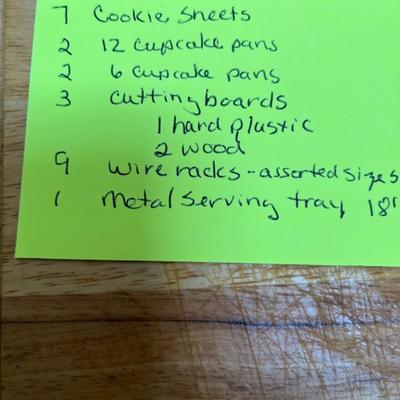 7 Cookie Sheets
2 12 cupcake pans
2 6 cupcake pans
3 cutting boards
1 hard plastic
2 wood
9 wire racks - assorted sizes
1 metal serving tray 18"